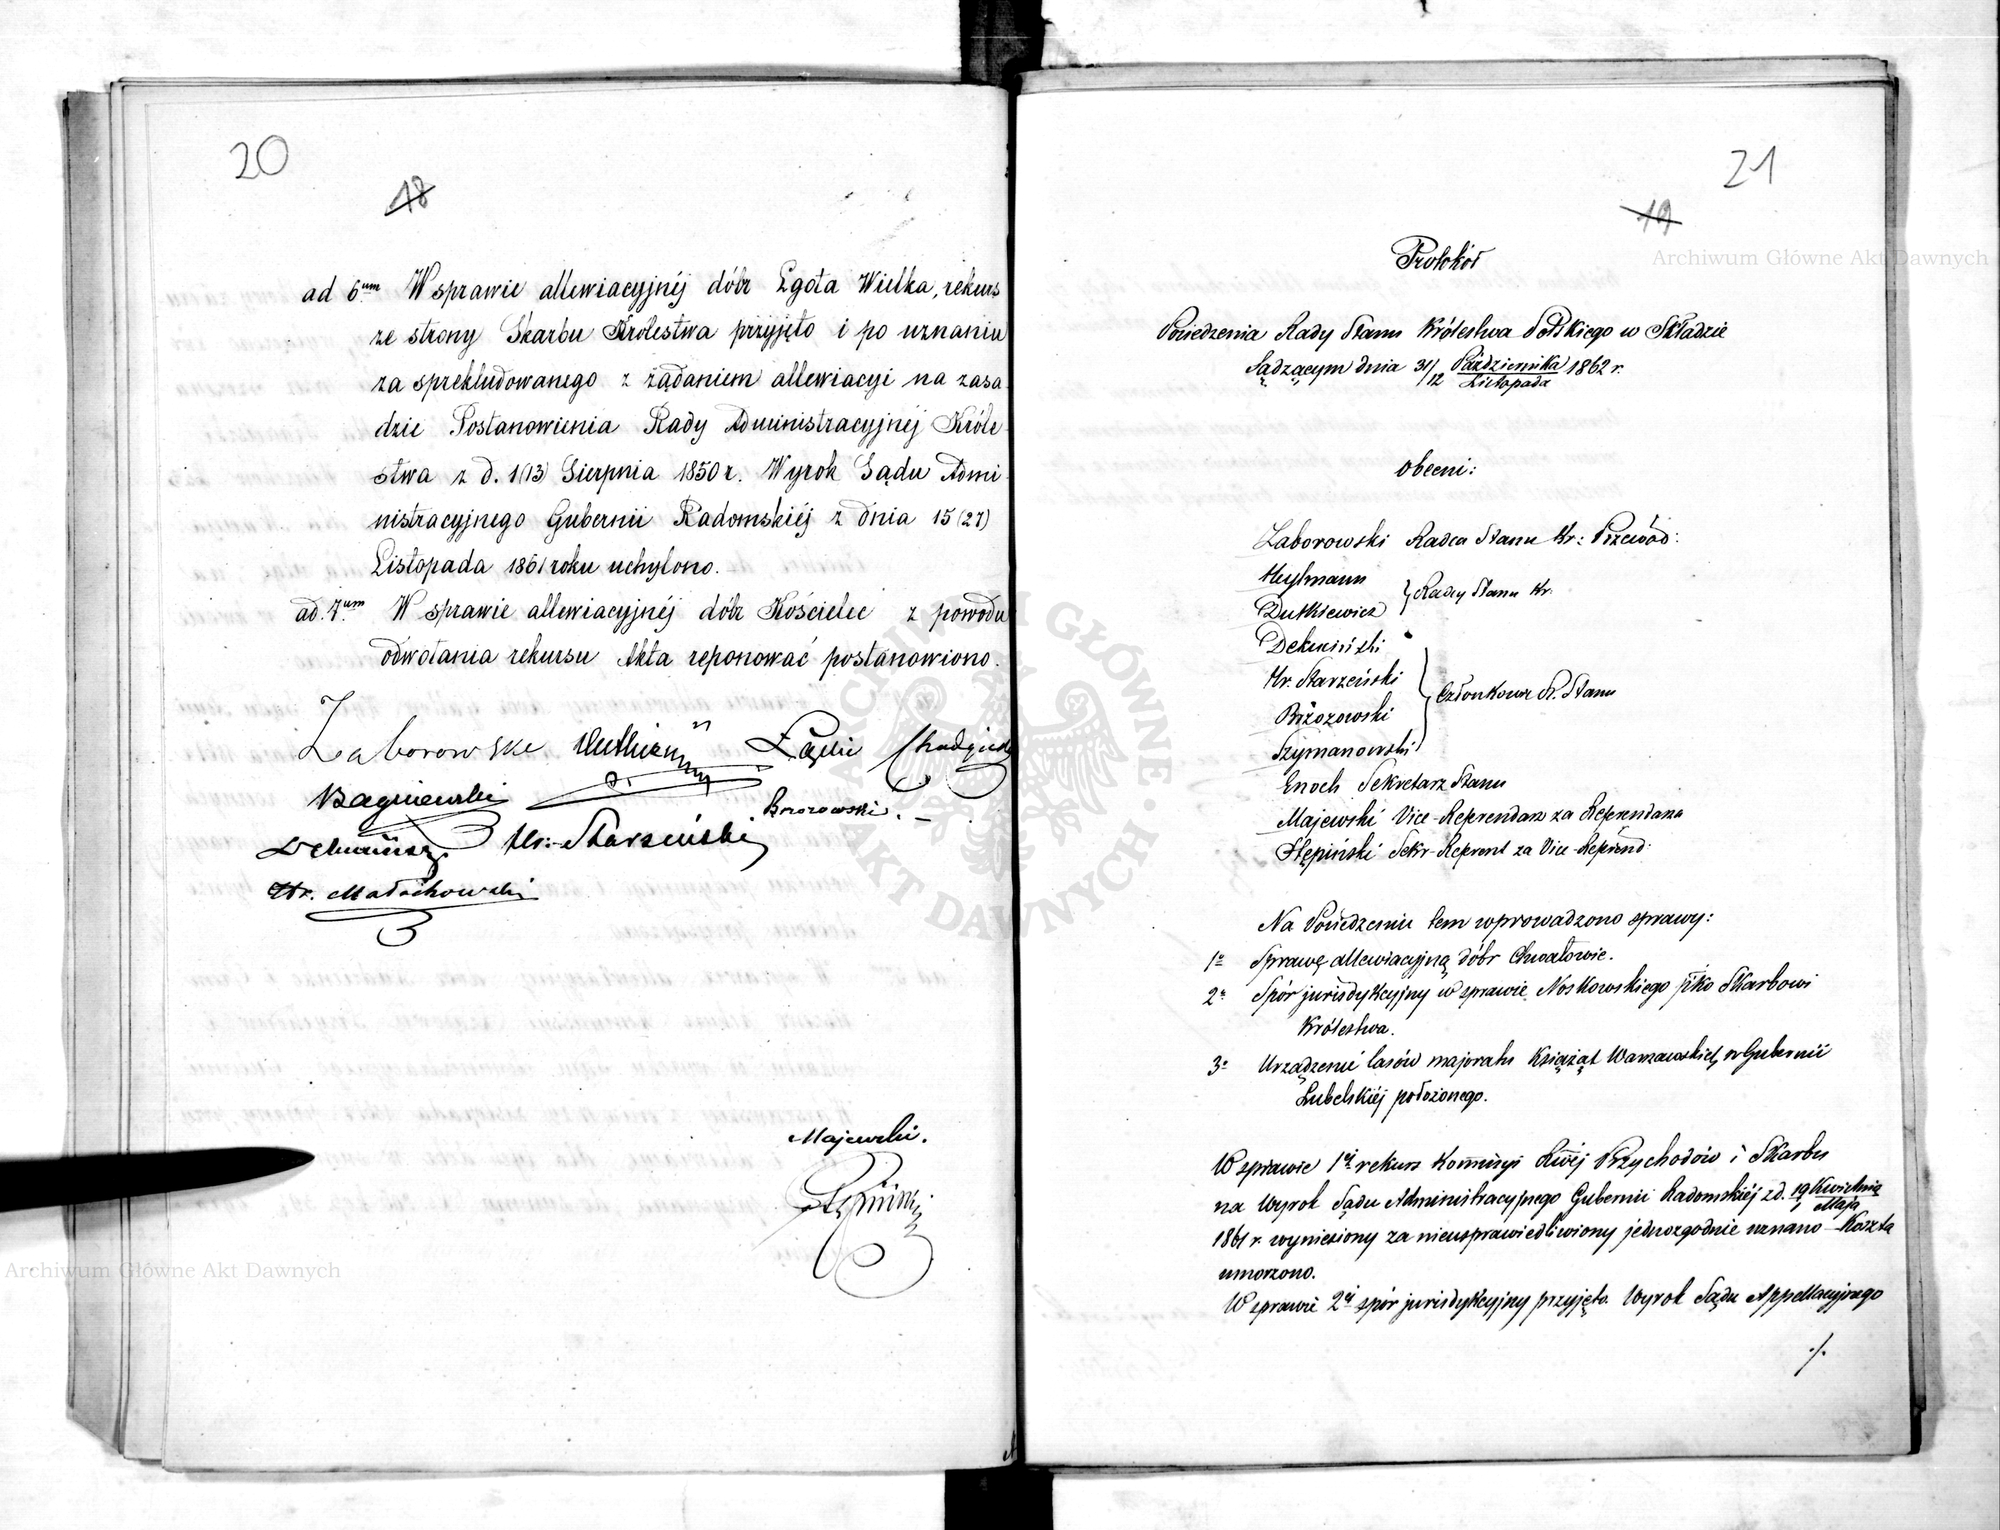 20
18
ad 6um W sprawie allewiacyjnéj dóbr Lgota Wielka, rekurs
ze strony Skarbu Królestwa przyjęto i po uznaniu
za sprekludowanego z żądaniem allewiacyi na zasa
dzie Postanowienia Rady Administracyjnéj Króle
stwa z d. 1(13) Sierpnia 1850 r. Wyrok Sądu Admi
nistracyjnego Gubernii Radomskiéj z dnia 15 (27)
Listopada 1861 roku uchylono.
ad. 7um W sprawie allewiacyjnéj dóbr Kościelec z powodu
odwołania rekursu Akta reponować postanowiono.
Zaborowski
Bagniewski
Brzozowski.
Dekuciński Hr. Starzeński
Hr. Małachowski
Majewski.
Stępiński
21
19
Protokół
Posiedzenia Rady Stanu Królestwa Polskiego w Składzie
Sądzącym dnia 31/12 Października/Listopada 1862 r.
Obecni:
Zaborowski Radca Stanu Kr: Przewod:
Heylmann
Dutkiewicz } Radcy Stanu Kr.
Dekuciński
Hr. Starzeński
Brzozowski } Członkowie R. Stanu
Szymanowski
Enoch Sekretarz Stanu
Majewski Vice-Referendarz za Referendarza
Stępiński Sekr-Referent za Vice-Referend:
Na Posiedzeniu tem wprowadzono sprawy:
1o Sprawę allewiacyjną dóbr Chwałowie.
2o Spór jurisdykcyjny w sprawie Noskowskiego pko Skarbowi
Królestwa.
3o Urządzenie lasów majoratu Książąt Warszawskich w Gubernii
Lubelskiéj położonego.
W sprawie 1éj rekurs Kommissyi Rwéj Przychodów i Skarbu
na Wyrok Sądu Administracyjnego Gubernii Radomskiéj z d. 19/1 Kwietnia/Maja
1861 r. wyniesiony za nieusprawiedliwiony jednozgodnie uznano - Koszta
umorzono.
W sprawie 2éj spór jurisdykcyjny przyjęto. Wyrok Sądu Appellacyjnego
./.
Archiwum Główne Akt Dawnych
Archiwum Główne Akt Dawnych
ARCHIWUM GŁÓWNE · AKT DAWNYCH ·